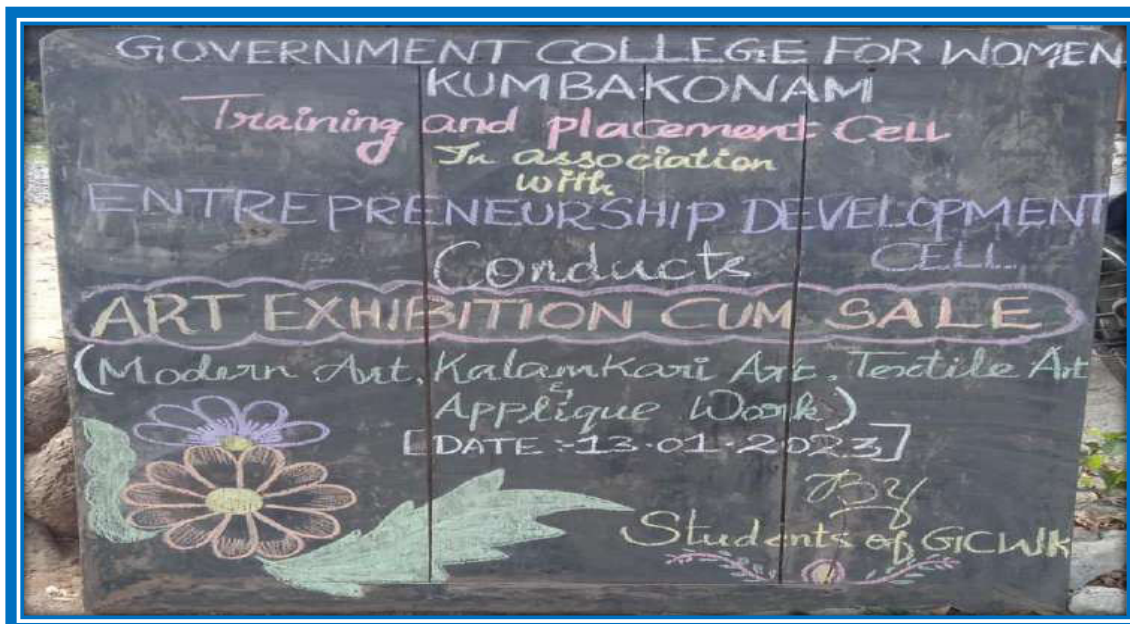 GOVERNMENT COLLEGE FOR WOMEN
KUMBAKONAM
Training and placement Cell
In association
with
ENTREPRENEURSHIP DEVELOPMENT
CELL
Conducts
ART EXHIBITION CUM SALE
(Modern Art, Kalamkari Art, Textile Art
&
Applique Work)
[DATE :-13.01.2023]
By
Students of GCWK